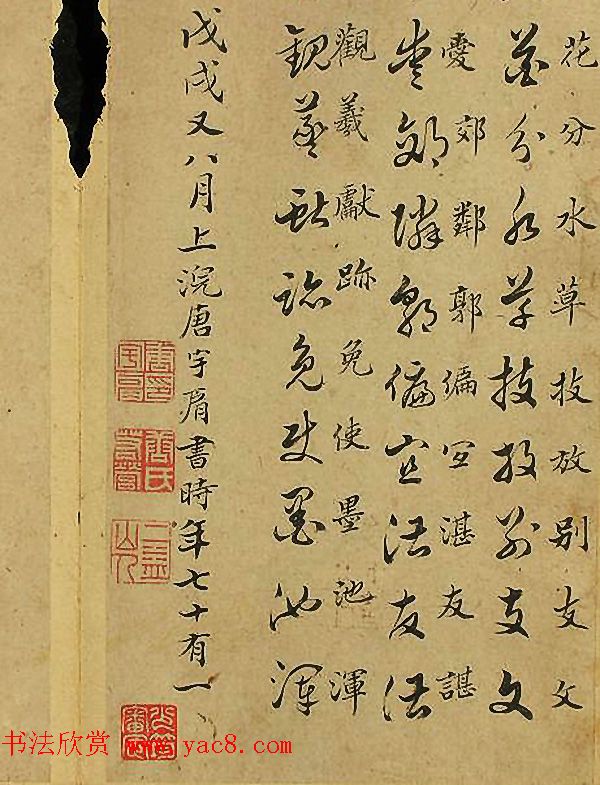 花分水草技放别支文
花分水草技放别支文
愛郊鄰郭偏宜湛友諶
愛郊鄰郭偏宜湛友諶
觀羲獻跡免使墨池渾
觀羲獻跡免使墨池渾
戊戌又八月上浣唐宇肩書時年七十有一
书法欣赏 www.yac8.com